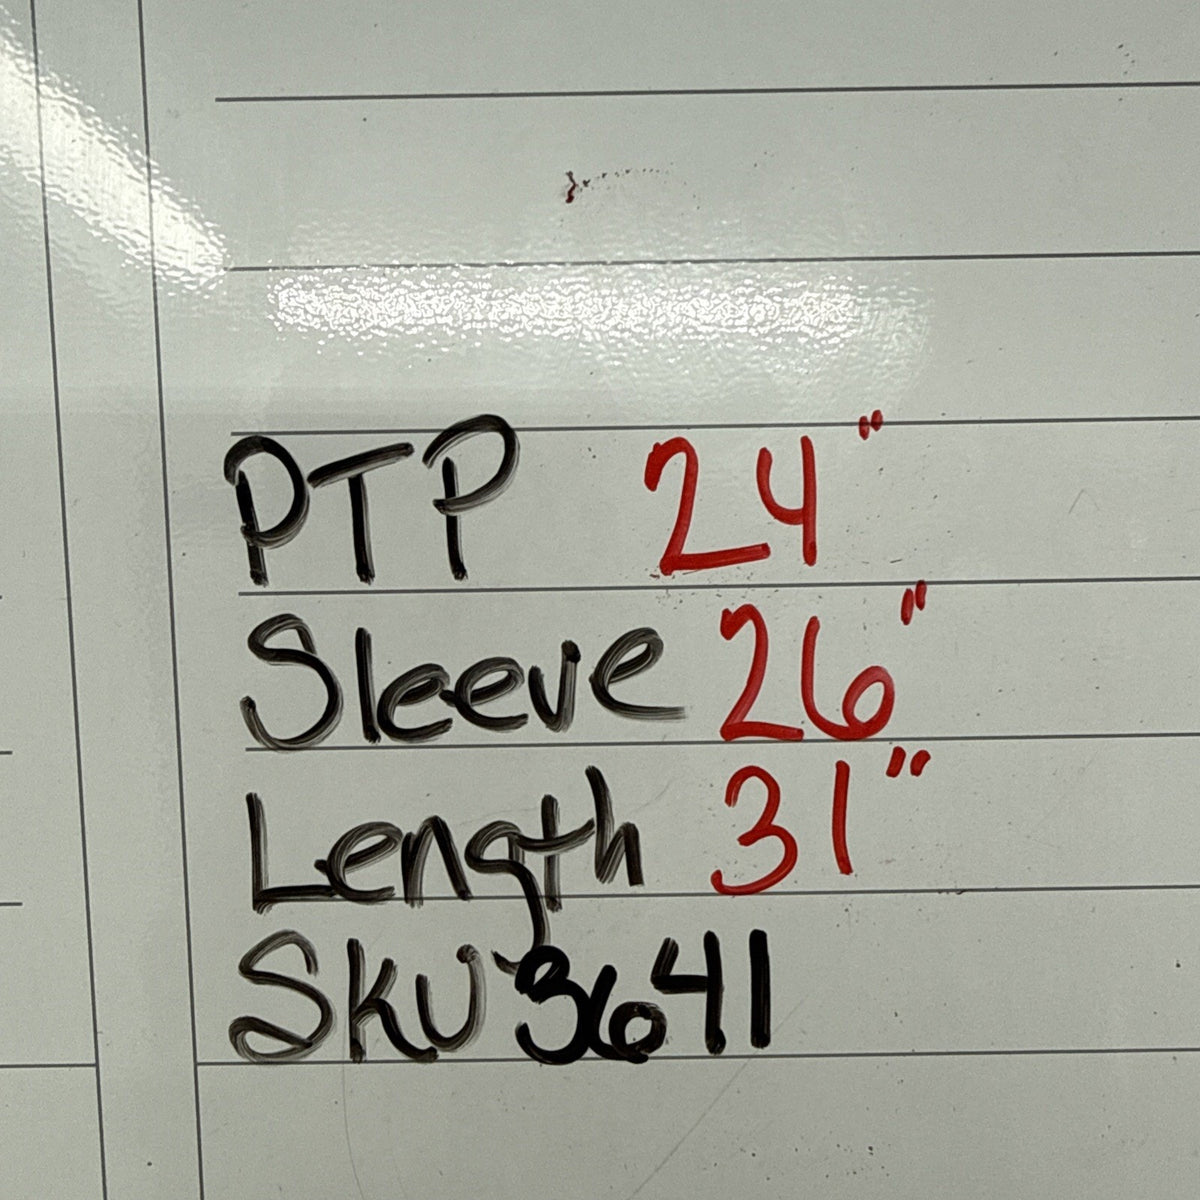 PTP 24"
Sleeve 26"
Length 31"
SKU 3641